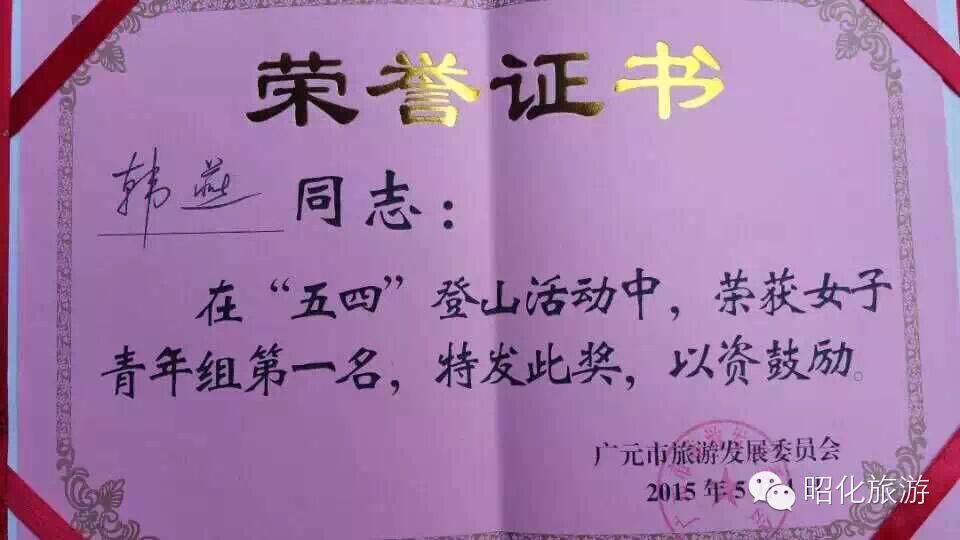 荣誉证书
韩燕 同志：
在“五四”登山活动中，荣获女子
青年组第一名，特发此奖，以资鼓励。
广元市旅游发展委员会
2015年5
昭化旅游